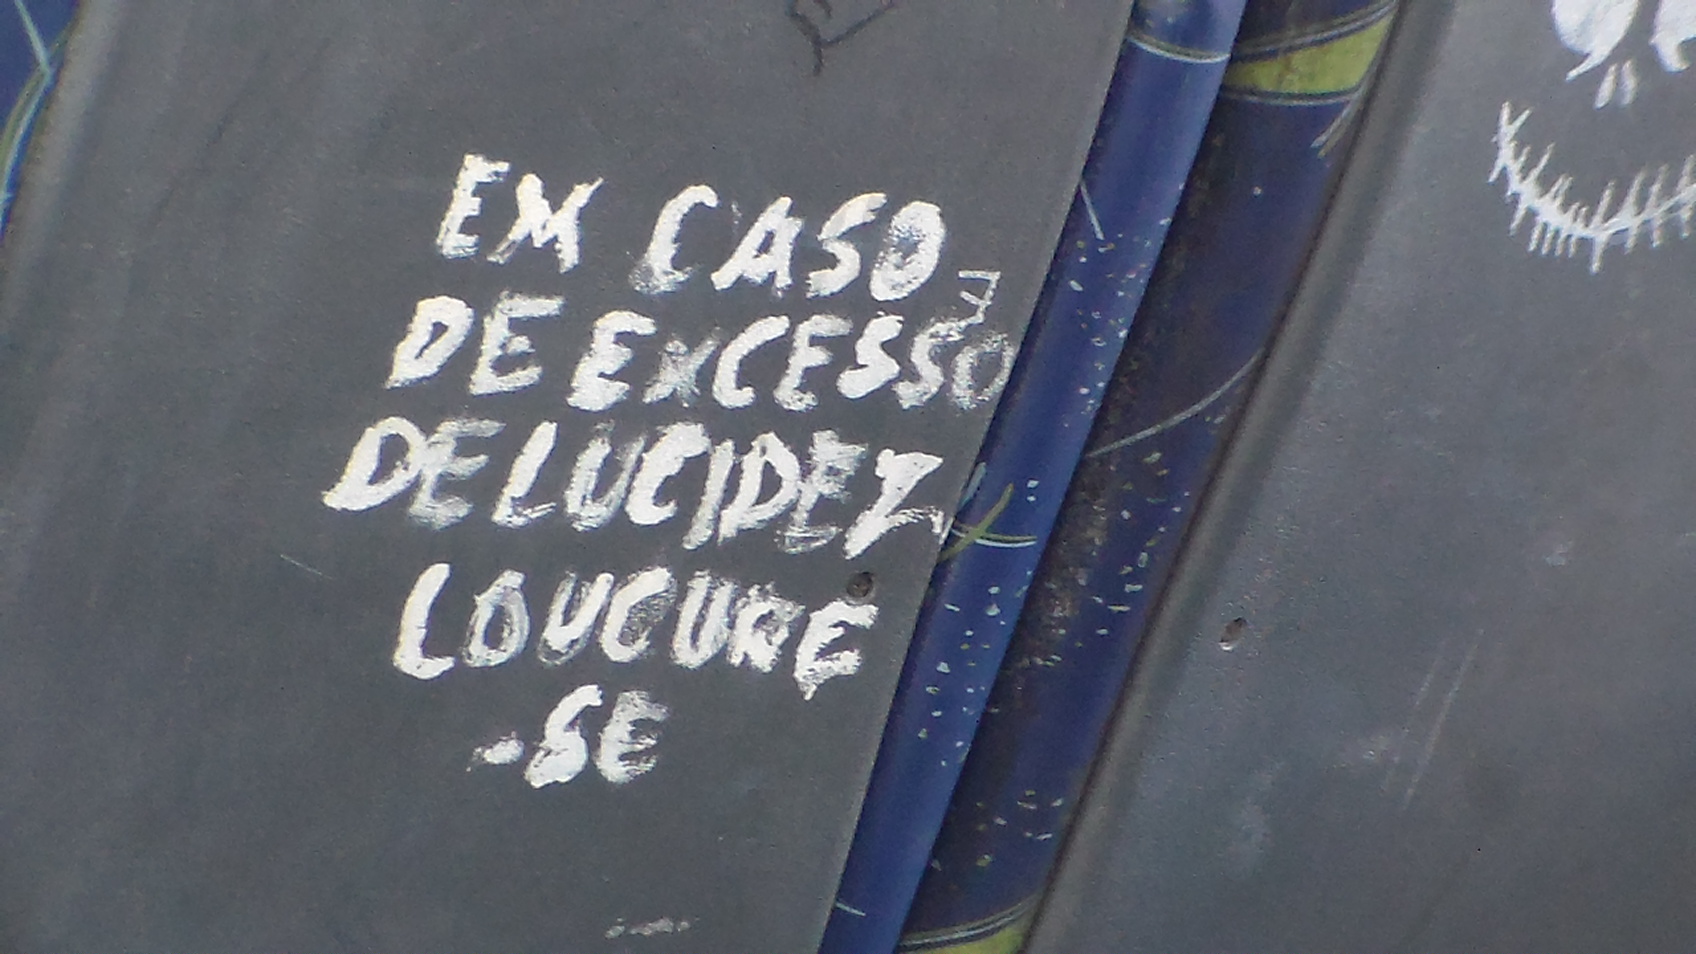 EM CASO
DE EXCESSO
DE LUCIDEZ,
LOUCURE
-SE